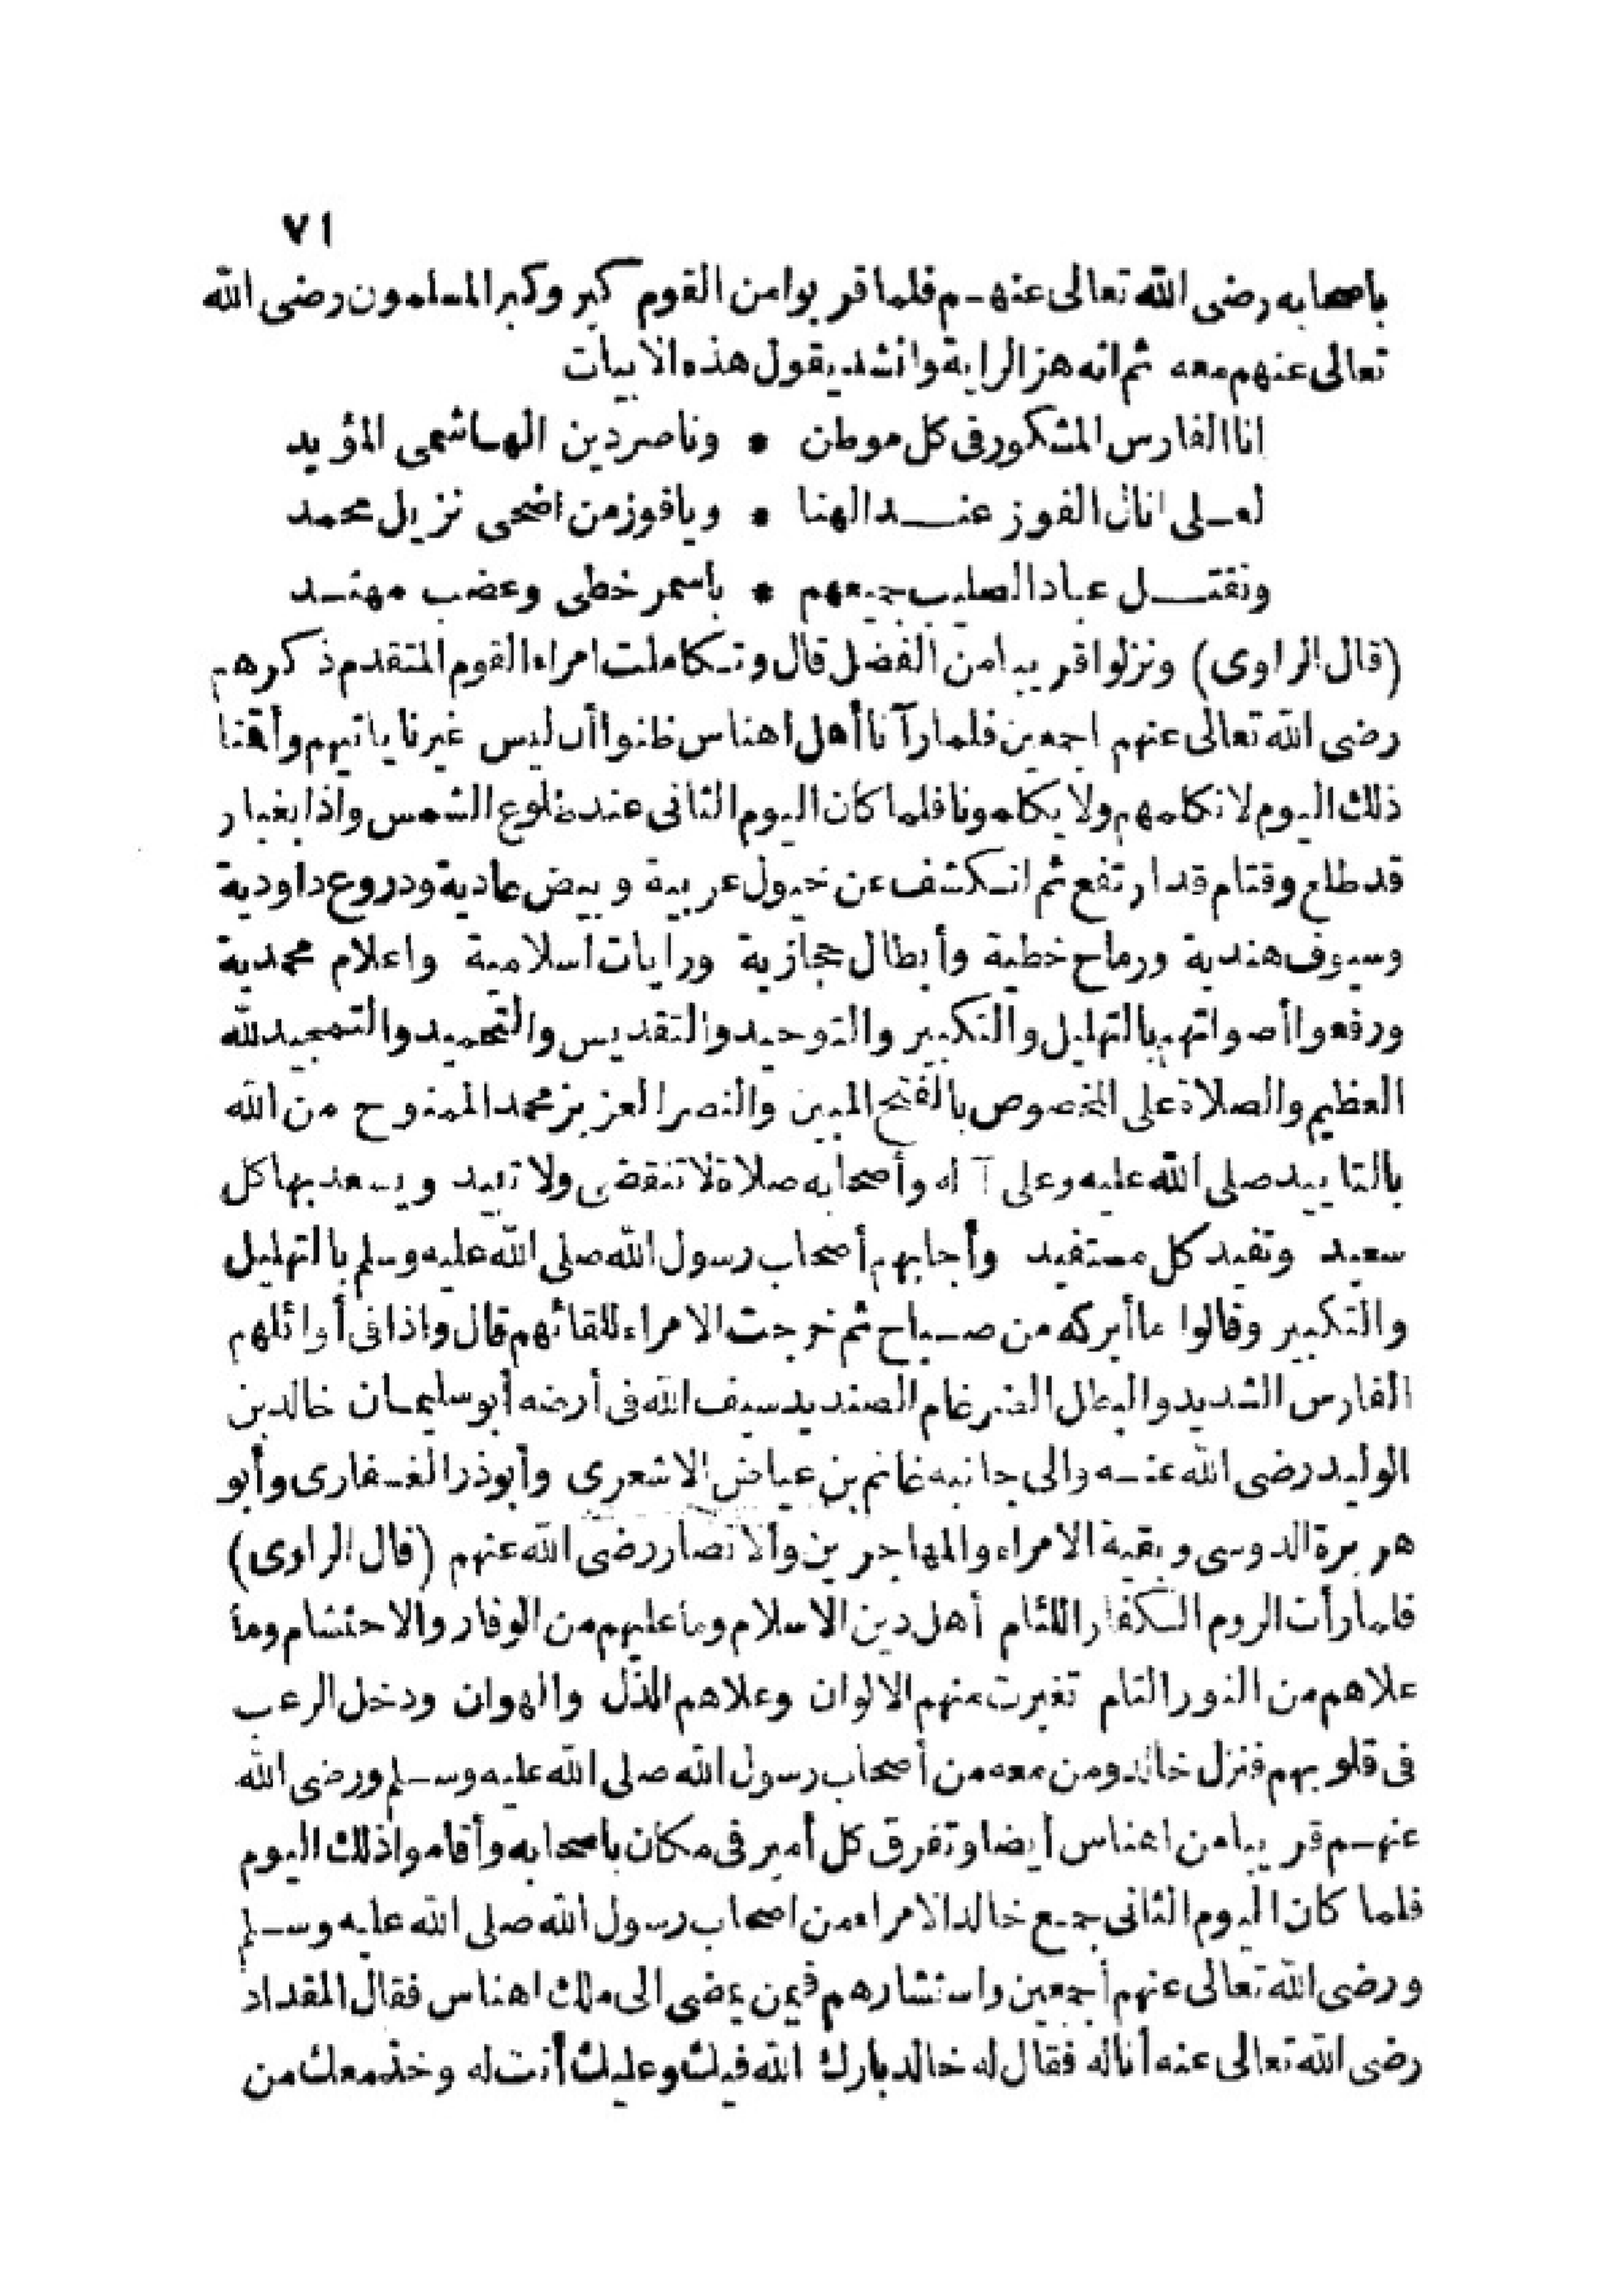 ٧١
باصحابه رضى الله تعالى عنهم فلما قربوا من القوم كبر وكبر المسلمون رضى الله
تعالى عنهم معه ثم انه هز الراية وانشد يقول هذه الابيات
انا الفارس المشكور فى كل موطن * وناصر دين الهاشمى المؤيد
لعلى انال الفوز عند الهنا * ويا فوز من اضحى نزيل محمد
ونقتل عباد الصليب جميعهم * باسمر خطى وعضب مهند
(قال الراوى) ونزلوا قريبا من الفضل قال وتكاملت امراء القوم المتقدم ذكرهم
رضى الله تعالى عنهم اجمعين فلما رآنا أهل اهناس ظنوا أن ليس غيرنا ياتيهم وأقنا
ذلك اليوم لا نكلمهم ولا يكلمونا فلما كان اليوم الثانى عند طلوع الشمس واذا بغبار
قد طلع وقتام قد ارتفع ثم انكشف عن خيول عربية وبيض عادية ودروع داودية
وسيوف هندية ورماح خطية وأبطال حجازية ورايات اسلامية واعلام محمدية
ورفعوا أصواتهم بالتهليل والتكبير والتوحيد والتقديس والتحميد والتمجيد لله
العظيم والصلاة على المخصوص بالفتح المبين والنصر العزيز محمد الممنوح من الله
بالتاييد صلى الله عليه وعلى آله وأصحابه صلاة لا تنقضى ولا تبيد ويسعد بها كل
سعيد وتفيد كل مستفيد وأجابهم أصحاب رسول الله صلى الله عليه وسلم بالتهليل
والتكبير وقالوا ما أبركه من صباح ثم خرجت الامراء للقائهم قال واذا فى أوائلهم
الفارس الشديد والبطل الضرغام الصنديد سيف الله فى أرضه أبو سليمان خالد بن
الوليد رضى الله عنه والى جانبه غانم بن عياض الاشعرى وأبوذر الغفارى وأبو
هريرة الدوسى وبقية الامراء والمهاجرين والانصار رضى الله عنهم (قال الراوى)
فلما رأت الروم الكفار اللئام أهل دين الاسلام وما عليهم من الوقار والاحتشام وما
علاهم من النور التام تغيرت منهم الالوان وعلاهم الذل والهوان ودخل الرعب
فى قلوبهم فنزل خالد ومن معه من أصحاب رسول الله صلى الله عليه وسلم ورضى الله
عنهم قريبا من اهناس أيضا وتفرق كل أمير فى مكان باصحابه وأقاموا ذلك اليوم
فلما كان اليوم الثانى جمع خالد الامراء من اصحاب رسول الله صلى الله عليه وسلم
ورضى الله تعالى عنهم أجمعين واستشارهم فيمن يمضى الى ملك اهناس فقال المقداد
رضى الله تعالى عنه أنا له فقال له خالد بارك الله فيك وعليك أنت له وخذ معك من